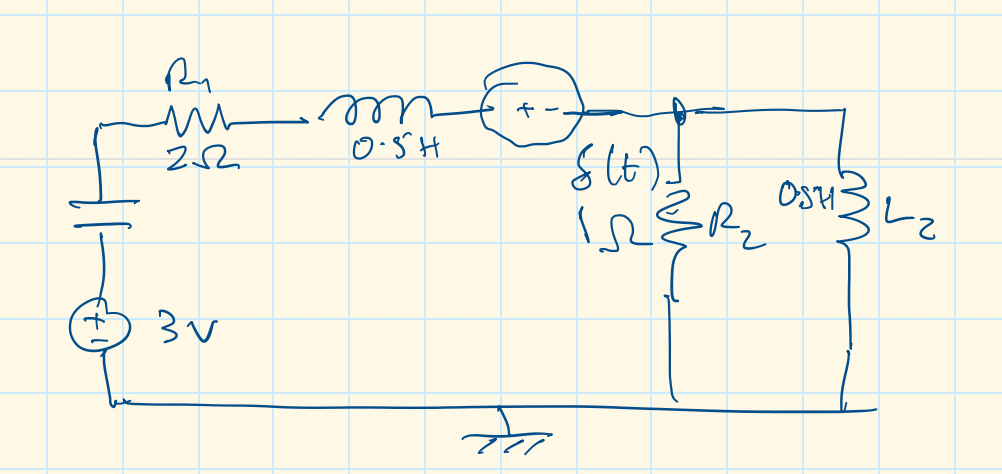 R1
2Ω
0.5H
+ -
δ(t)
1Ω
R2
0.5H
L2
+
-
3V